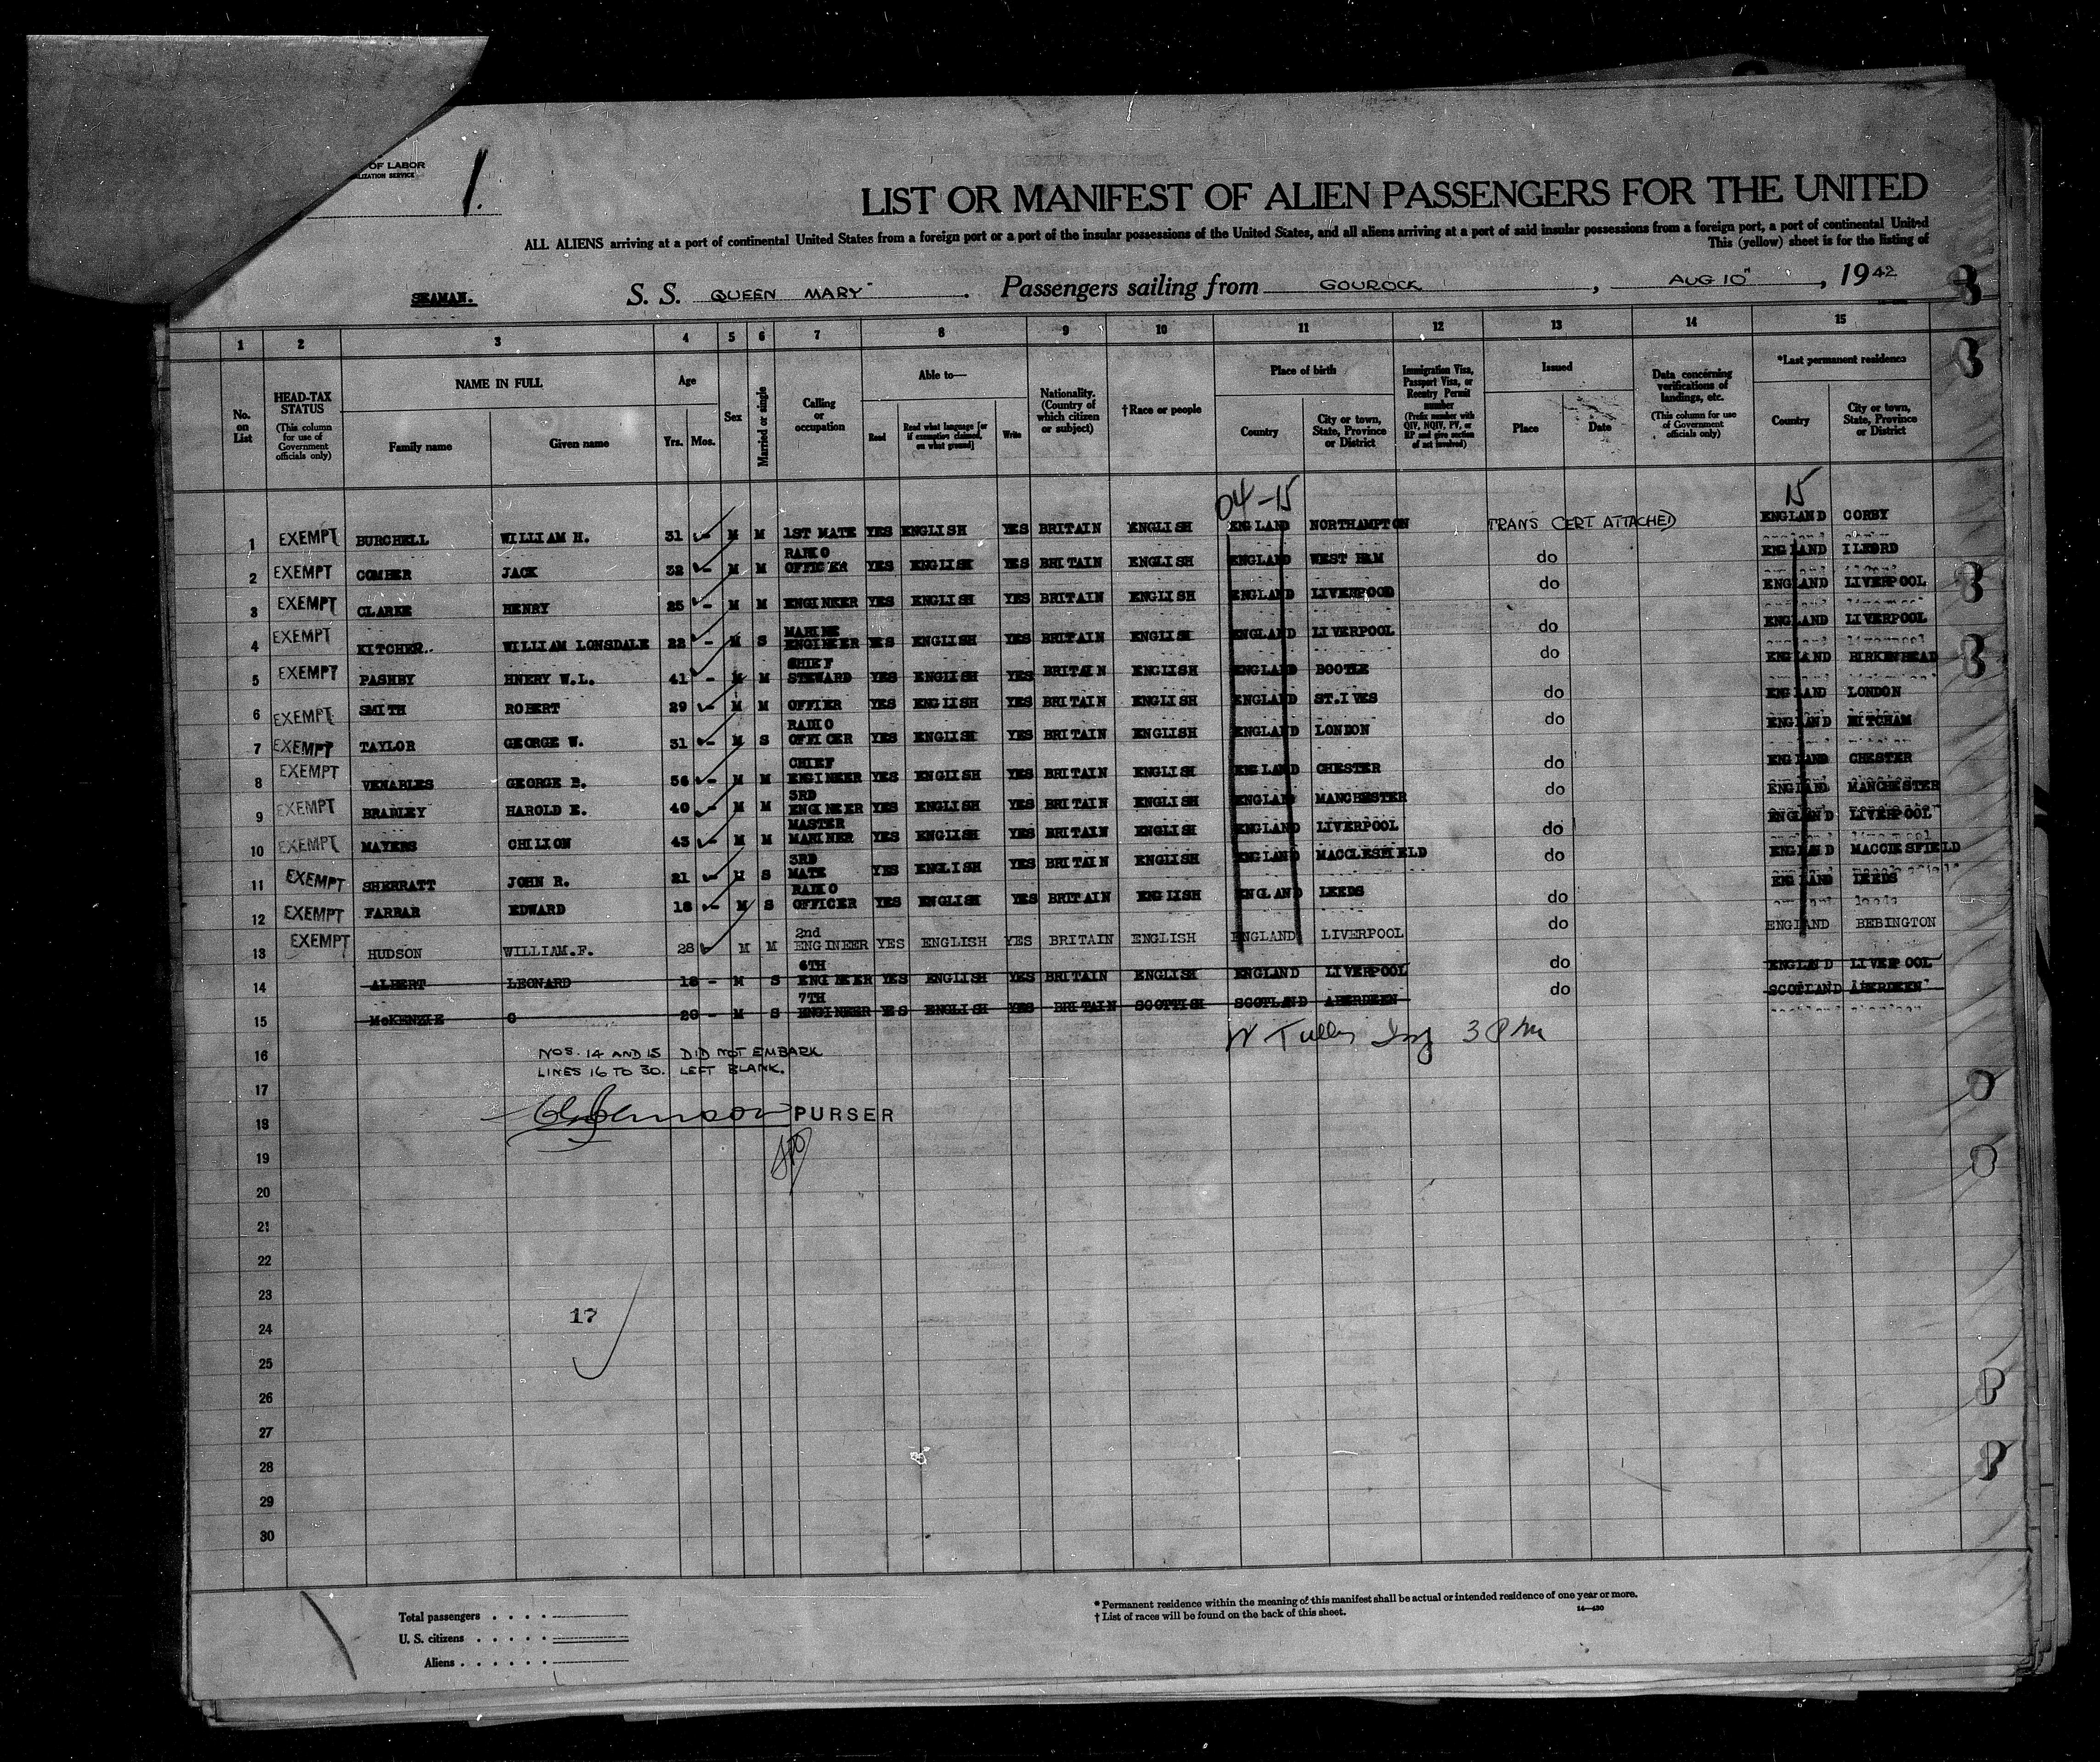 OF LABOR
1.
LIST OR MANIFEST OF ALIEN PASSENGERS FOR THE UNITED
ALL ALIENS arriving at a port of continental United States from a foreign port or a port of the insular possessions of the United States, and all aliens arriving at a port of said insular possessions from a foreign port, a port of continental United
This (yellow) sheet is for the listing of
SEAMAN. S. S. QUEEN MARY Passengers sailing from GOUROCK, AUG 10", 1942
1 2 3 4 5 6 7 8 9 10 11 12 13 14 15
No. on List
HEAD-TAX STATUS (This column for use of Government officials only)
NAME IN FULL Family name Given name
Age Yrs. Mos.
Sex
Married or single
Calling or occupation
Able to— Read Read what language [or if exemption claimed, on what ground] Write
Nationality. (Country of which citizen or subject)
†Race or people
Place of birth Country City or town, State, Province or District
Immigration Visa, Passport Visa, or Reentry Permit number (Prefix number with QIV, NQIV, PV, or RP and give section of act involved)
Issued Place Date
Data concerning verifications of landings, etc. (This column for use of Government officials only)
*Last permanent residence Country City or town, State, Province or District
04-15 15
1 EXEMPT BURCHELL WILLIAM H. 31 - M M 1ST MATE YES ENGLISH YES BRITAIN ENGLISH ENGLAND NORTHAMPTON TRANS CERT ATTACHED ENGLAND CORBY
2 EXEMPT COMBER JACK 32 - M M RADIO OFFICER YES ENGLISH YES BRITAIN ENGLISH ENGLAND WEST HAM do ENGLAND ILFORD
3 EXEMPT CLARKE HENRY 25 - M M ENGINEER YES ENGLISH YES BRITAIN ENGLISH ENGLAND LIVERPOOD do ENGLAND LIVERPOOL
4 EXEMPT KITCHER.. WILLIAM LONSDALE 22 - M S MARINE ENGINEER YES ENGLISH YES BRITAIN ENGLISH ENGLAND LIVERPOOL do ENGLAND LIVERPOOL
5 EXEMPT PASHBY HNERY W.L. 41 - M M CHIEF STEWARD YES ENGLISH YES BRITAIN ENGLISH ENGLAND BOOTLE do ENGLAND BIRKENHEAD
6 EXEMPT SMITH ROBERT 29 - M M OFFIER YES ENGLISH YES BRITAIN ENGLISH ENGLAND ST.IVES do ENGLAND LONDON
7 EXEMPT TAYLOR GEORGE W. 31 - M S RADIO OFFICER YES ENGLISH YES BRITAIN ENGLISH ENGLAND LONDON do ENGLAND MITCHAM
8 EXEMPT VENABLES GEORGE B. 56 - M M CHIEF ENGINEER YES ENGLISH YES BRITAIN ENGLISH ENGLAND CHESTER do ENGLAND CHESTER
9 EXEMPT BRADLEY HAROLD E. 40 - M M 3RD ENGINEER YES ENGLISH YES BRITAIN ENGLISH ENGLAND MANCHESTER do ENGLAND MANCHESTER
10 EXEMPT MAYERS CHILION 43 - M M MASTER MARINER YES ENGLISH YES BRITAIN ENGLISH ENGLAND LIVERPOOL do ENGLAND LIVERPOOL
11 EXEMPT SHERRATT JOHN R. 21 - M S 3RD MATE YES ENGLISH YES BRITAIN ENGLISH ENGLAND MACCLESFIELD do ENGLAND MACCLESFIELD
12 EXEMPT FARRAR EDWARD 18 - M S RADIO OFFICER YES ENGLISH YES BRITAIN ENGLISH ENGLAND LEEDS do ENGLAND LEEDS
13 EXEMPT HUDSON WILLIAM.F. 28 M M 2nd ENGINEER YES ENGLISH YES BRITAIN ENGLISH ENGLAND LIVERPOOL do ENGLAND BEBINGTON
14 ALBERT LEONARD 18 - M S 6TH ENGINEER YES ENGLISH YES BRITAIN ENGLISH ENGLAND LIVERPOOL do ENGLAND LIVERPOOL
15 McKENZIE G 20 - M S 7TH ENGINEER YES ENGLISH YES BRITAIN SCOTTISH SCOTLAND ABERDEEN do SCOTLAND ABERDEEN
3 PM
16 NOS. 14 AND 15 DID NOT EMBARK
LINES 16 TO 30. LEFT BLANK.
17
18 PURSER
19
20
21
22
23
17
24
25
26
27
28
29
30
Total passengers
U. S. citizens
Aliens
* Permanent residence within the meaning of this manifest shall be actual or intended residence of one year or more.
† List of races will be found on the back of this sheet.
14—430